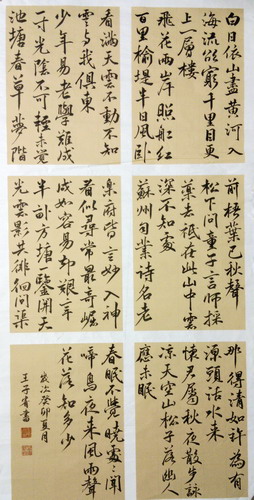 白日依山盡黄河入
海流欲窮千里目更
上一層樓
飛花兩岸照船紅
百里榆堤半日風臥
看滿天雲不動不知
雲与我俱東
少年易老學難成一
寸光陰不可輕未覺
池塘春草夢階
前梧葉已秋聲
松下問童子言師採
藥去祗在此山中雲
深不知處
蘇州司業詩名老
樂府皆言妙入神
看似尋常最奇崛
成如容易却艱辛
半畝方塘一鑒開天
光雲影共徘徊問渠
那得清如許為有
源頭活水來
懷君屬秋夜散步詠
涼天空山松子落幽人
應未眠
春眠不覺曉處處聞
啼鳥夜來風雨聲
花落知多少
歲次癸卯夏月
王子書